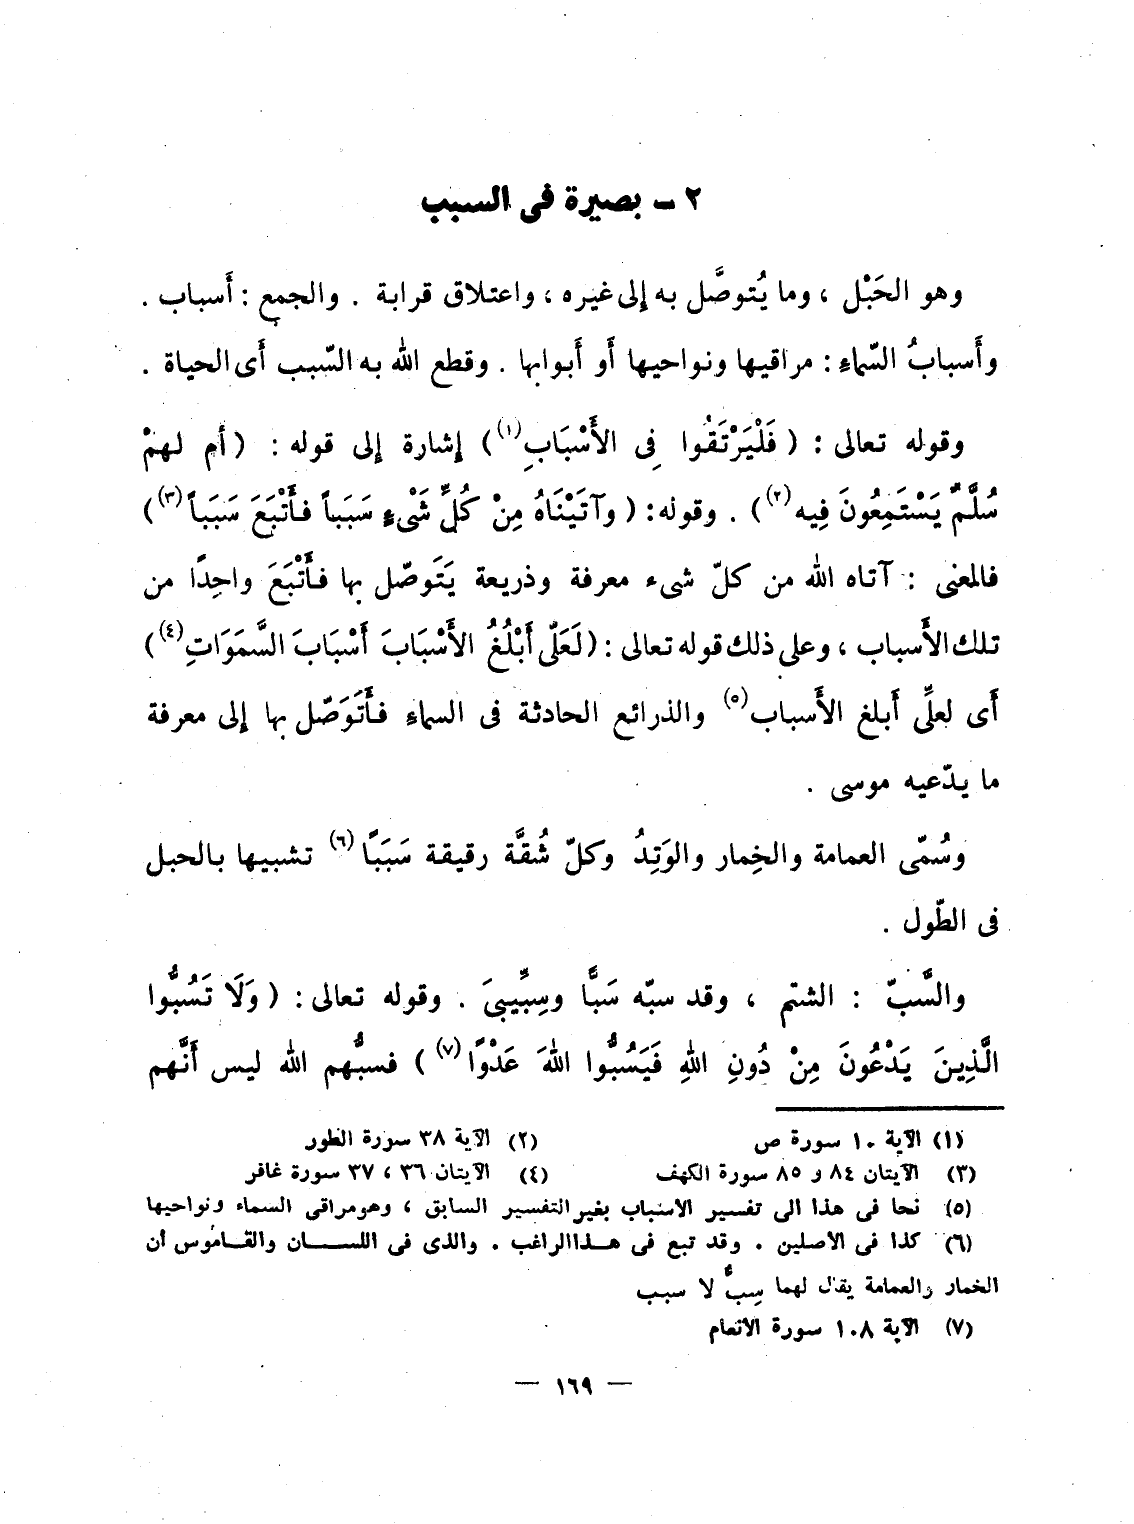 ٢ – بصيرة فى السبب
وهو الحَبْل ، وما يُتوصَّل به إلى غيره ، واعتلاق قرابة . والجمع : أَسباب .
وأَسبابُ السّماءِ : مراقيها ونواحيها أَو أَبوابها . وقطع الله به السّبب أَى الحياة .
وقوله تعالى : ( فَلْيَرْتَقُوا فِى الأَسْبَابِ(١) ) إشارة إلى قوله : ( أَم لهمْ
سُلَّمٌ يَسْتَمِعُونَ فِيه(٢) ) . وقوله : ( وآتَيْنَاهُ مِنْ كُلِّ شَىْءٍ سَبَباً فأَتْبَعَ سَبَباً(٣) )
فالمعنى : آتاه الله من كلّ شىء معرفة وذريعة يَتَوصّل بها فأَتْبَعَ واحِدًا من
تلك الأَسباب ، وعلى ذلك قوله تعالى : ( لَعَلِّى أَبْلُغُ الأَسْبَابَ أَسْبَابَ السَّمَوَاتِ(٤) )
أَى لعلِّى أَبلغ الأَسباب(٥) والذرائع الحادثة فى السماءِ فأَتَوَصّل بها إلى معرفة
ما يدّعيه موسى .
وسُمّى العمامة والخِمار والوَتِدُ وكلّ شُقَّة رقيقة سَبَبًا(٦) تشبيها بالحبل
فى الطّول .
والسَّبّ : الشتْم ، وقد سبّه سَبًّا وسِبِّيبىَ . وقوله تعالى : ( وَلَا تَسُبُّوا
الَّذِينَ يَدْعُونَ مِنْ دُونِ اللهِ فَيَسُبُّوا اللهَ عَدْوًا(٧) ) فسبُّهم الله ليس أَنَّهم
(١) الآية ١٠ سورة ص (٢) الآية ٣٨ سورة الطور
(٣) الآيتان ٨٤ و ٨٥ سورة الكهف (٤) الآيتان ٣٦ ، ٣٧ سورة غافر
(٥) نحا فى هذا الى تفسير الاسباب بغير التفسير السابق ، وهو مراقى السماء ونواحيها
(٦) كذا فى الاصلين . وقد تبع فى هذا الراغب . والذى فى اللسان والقاموس أن
الخمار والعمامة يقال لهما سِبٌّ لا سبب
(٧) الآية ١٠٨ سورة الانعام
— ١٦٩ —